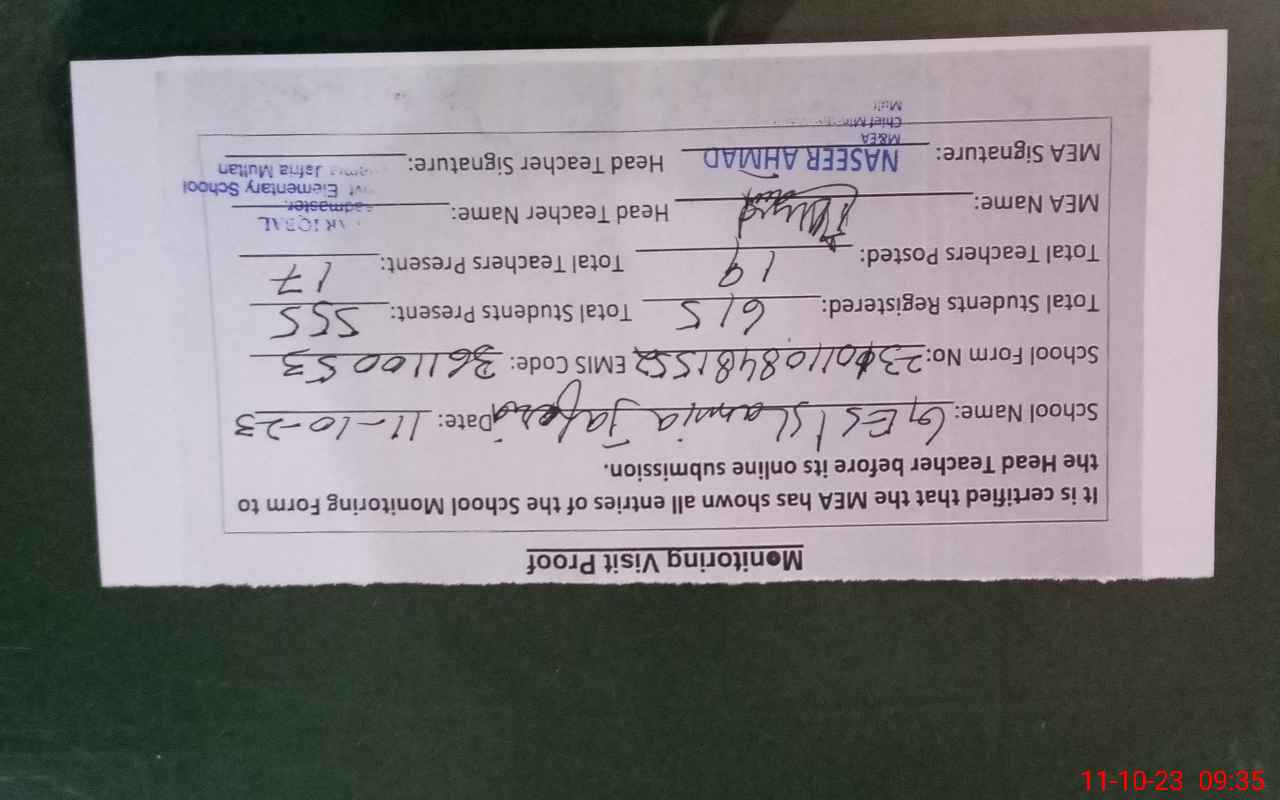 Monitoring Visit Proof
It is certified that the MEA has shown all entries of the School Monitoring Form to
the Head Teacher before its online submission.
School Name: GES Islamia Jaferia Date: 11-10-23
School Form No: EMIS Code: 36110053
Total Students Registered: 615 Total Students Present: 555
Total Teachers Posted: 19 Total Teachers Present: 17
MEA Name: Head Teacher Name: IQBAL
Elementary School
MEA Signature: NASEER AHMAD Head Teacher Signature: Jafria Multan
M&EA
11-10-23 09:35